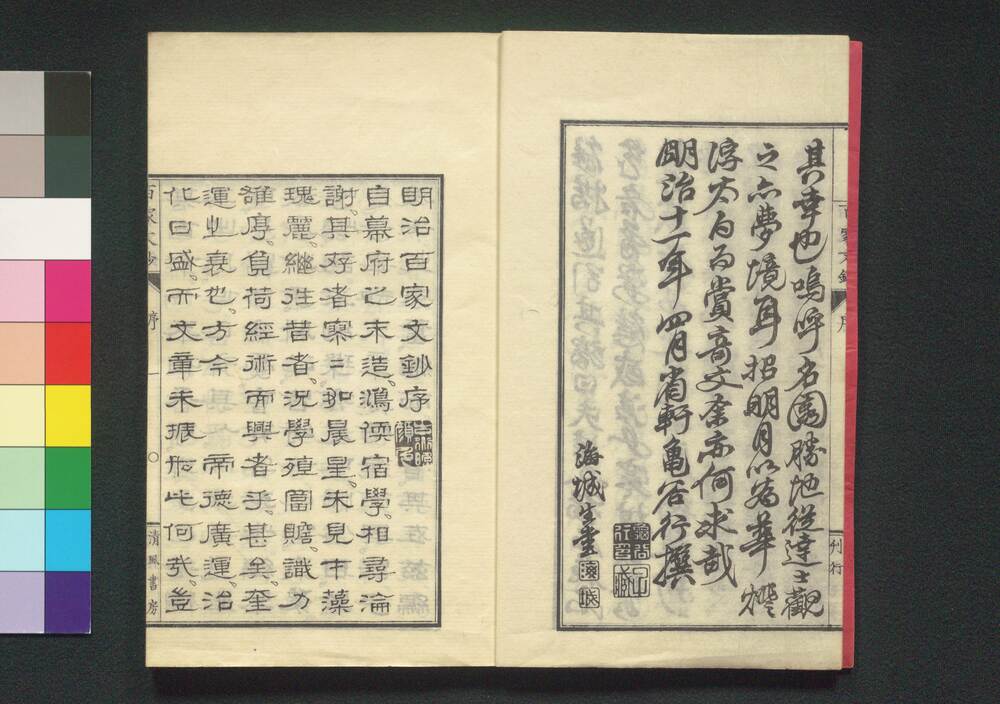 其幸也嗚呼名園勝地從達士觀
之亦夢境耳招明月以為華燈
浮太白為賞音文余亦何求哉
明治十一年四月省軒龜谷行撰
海城生書
明治百家文鈔序
自幕府之末造。鴻儒宿學。相尋淪
謝。其存者寥々如晨星。未見才藻
瑰麗。繼往昔者。況學殖富贍。識力
雄厚。負荷經術而興者乎。甚矣。奎
運之衰也。方今 帝德廣運。治
化日盛。而文章未振於此何哉。豈
百家文鈔 序 一 ○ 清風書房